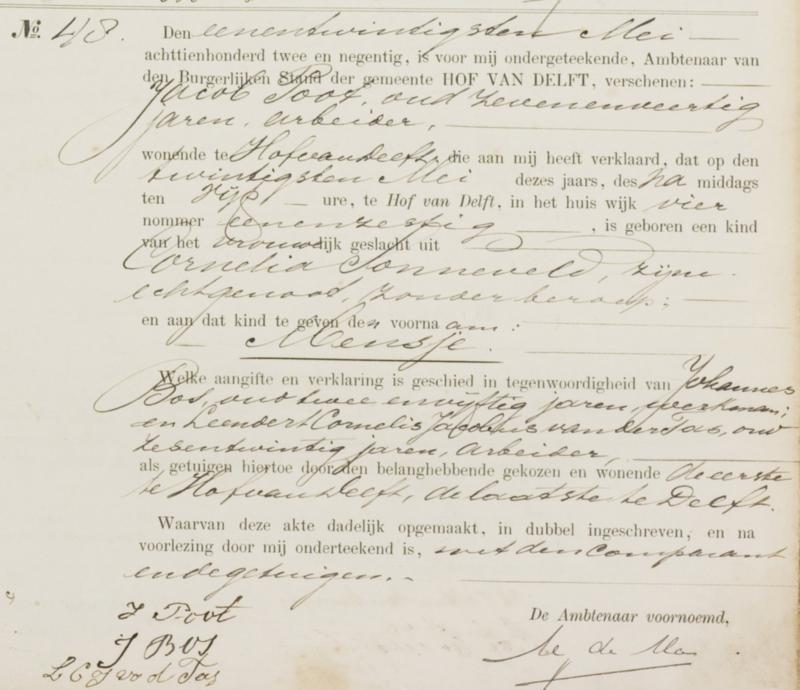 No. 48. Den eenentwintigsten Mei
achttienhonderd twee en negentig, is voor mij ondergeteekende, Ambtenaar van
den Burgerlijken Stand der gemeente HOF VAN DELFT, verschenen:
Jacob Poot, oud zevenenveertig
jaren, arbeider,
wonende te Hof van Delft, die aan mij heeft verklaard, dat op den
twintigsten Mei dezes jaars, des na middags
ten vijf ure, te Hof van Delft, in het huis wijk vier
nommer eenenzestig, is geboren een kind
van het vrouwelijk geslacht uit
Cornelia Sonneveld, zijne
echtgenoot, zonder beroep;
en aan dat kind te geven den voornaam:
Mensje.
Welke aangifte en verklaring is geschied in tegenwoordigheid van Johannes
Bos, oud twee en vijftig jaren, werkman;
en Leendert Cornelis Jacobus van der Tas, oud
zesentwintig jaren, arbeider,
als getuigen hiertoe door den belanghebbende gekozen en wonende de eerste
te Hof van Delft, de laatste te Delft.
Waarvan deze akte dadelijk opgemaakt, in dubbel ingeschreven, en na
voorlezing door mij onderteekend is, met den comparant
en de getuigen.
J Poot
De Ambtenaar voornoemd,
J BOS
L C J v d Tas